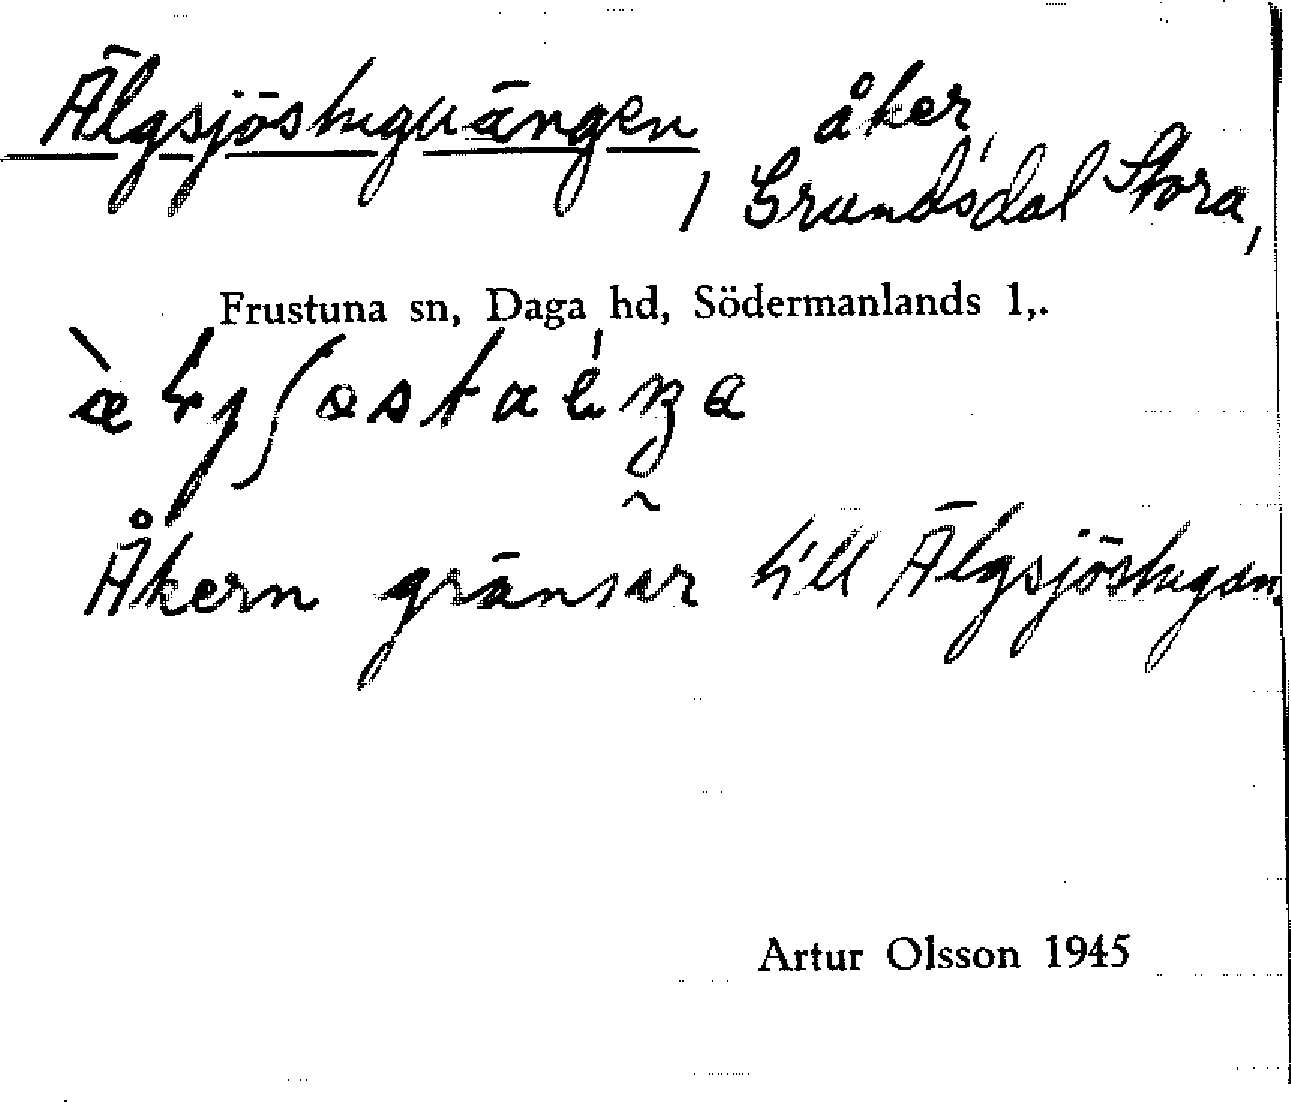 Älgsjöstuguängen, åker
Grundsdal Stora,
Frustuna sn, Daga hd, Södermanlands l,.
Åkern gränsar till Älgsjöstugan.
Artur Olsson 1945